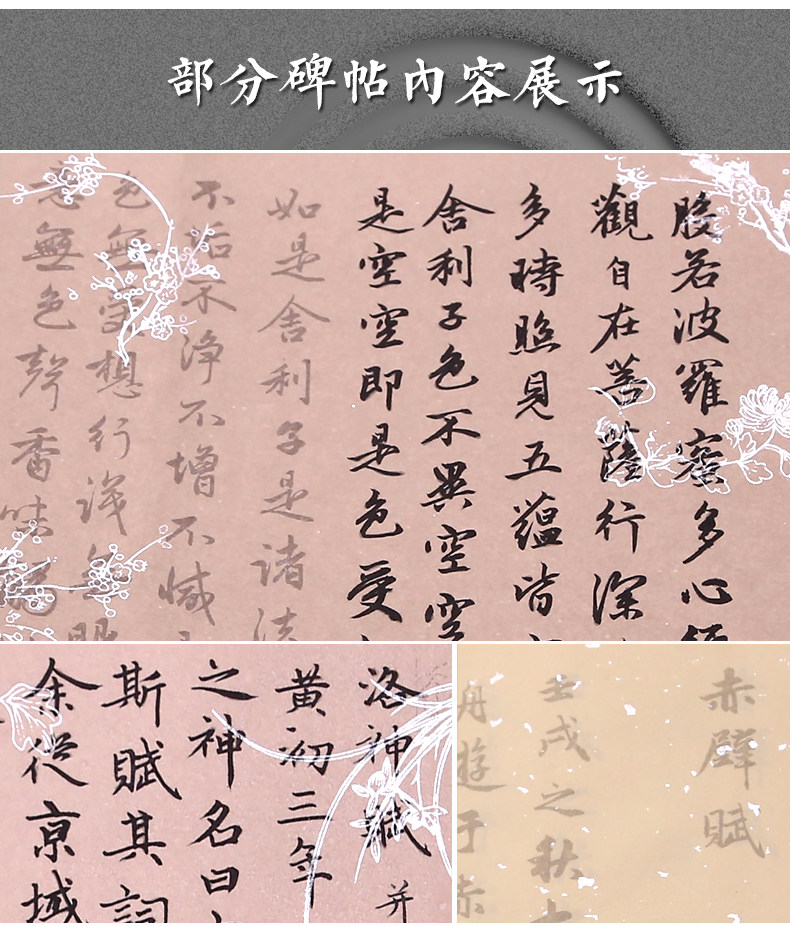 部分碑帖內容展示
般若波羅蜜多心經
觀自在菩薩行深
多時照見五蘊皆
舍利子色不異空空
是空空即是色受
如是舍利子是諸法
不垢不淨不增不減
色無受想行識無眼
意無色聲香味觸
洛神賦 并
黃初三年
之神名曰
斯賦其詞
余從京域
赤壁賦
壬戌之秋
舟遊于赤